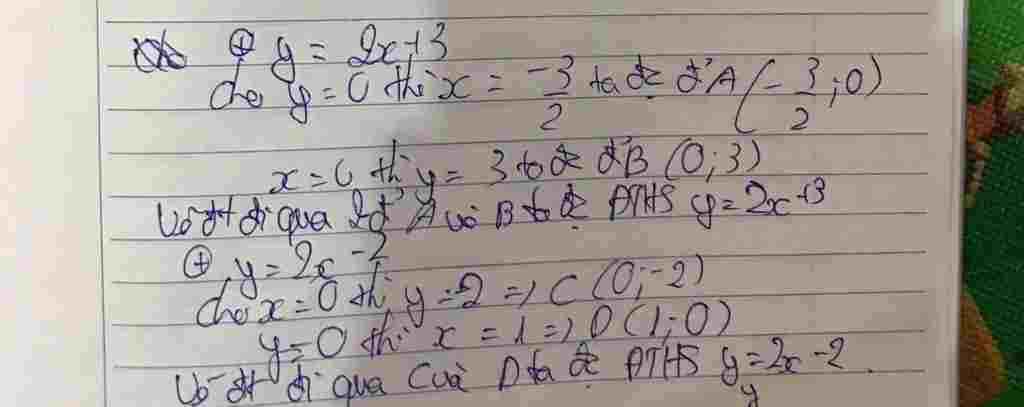 ⊕ y = 2x+3
cho y = 0 thì x = -3/2 ta đc đ' A (-3/2 ; 0)
x = 0 thì y = 3 ta đc đ' B (0; 3)
Vẽ đt đi qua 2 đ' A và B ta đc ĐTHS y = 2x+3
⊕ y = 2x - 2
cho x = 0 thì y = -2 => C (0; -2)
y = 0 thì x = 1 => D (1; 0)
Vẽ đt đi qua C và D ta đc ĐTHS y = 2x - 2.
y